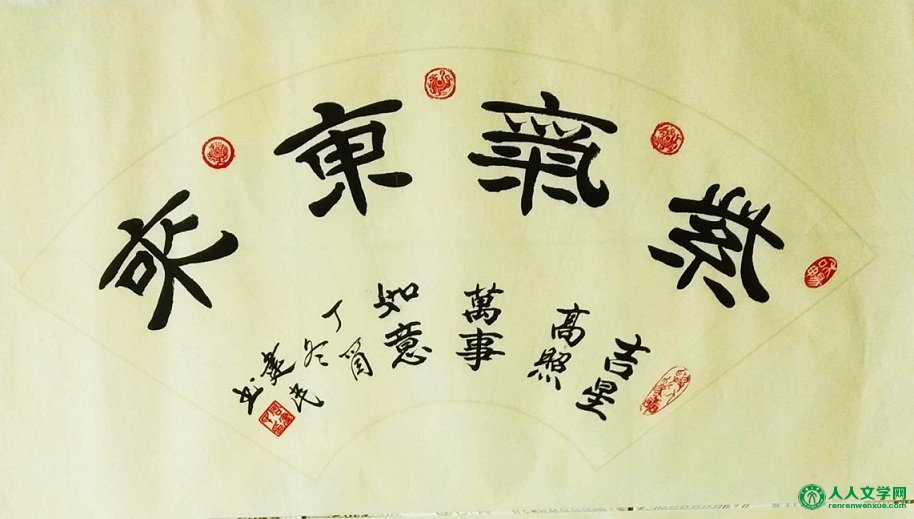 紫氣東來
吉星
高照
萬事
如意
丁酉
冬
民
书
人人文学网
renrenwenxue.com